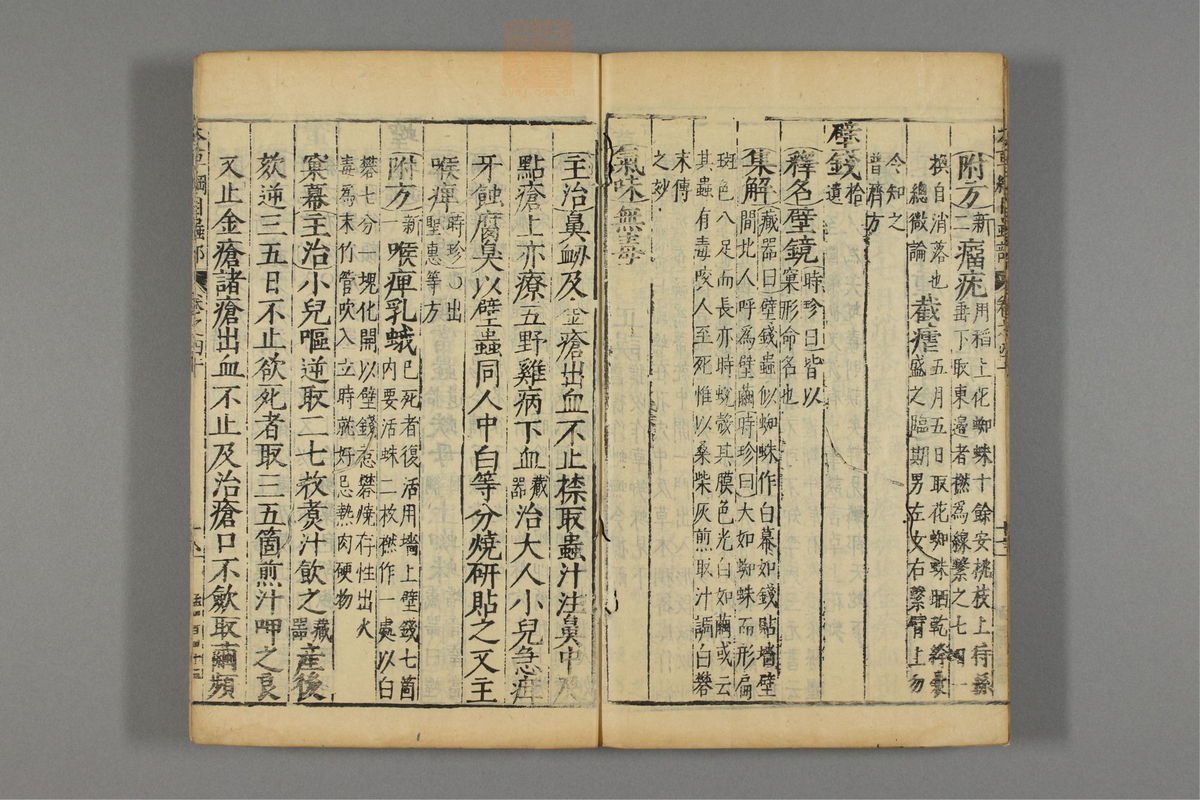 附方新二瘤疣用稻上花蜘蛛十餘安桃枝上待絲垂下取東邊者撚爲線繫之七日一換自消落也總微論截瘧五月五日取花蜘蛛晒乾絳囊盛之臨期男左女右繫臂上勿令知之普濟方
壁錢拾遺
釋名壁鏡時珍曰皆以窠形命名也
集解藏器曰壁錢蟲似蜘蛛作白幕如錢貼墻壁間北人呼爲壁繭時珍曰大如蜘蛛而形扁斑色八足而長亦時蛻殼其膜色光白如繭或云其蟲有毒咬人至死惟以桑柴灰煎取汁調白礬末傅之妙
氣味無毒
主治鼻衄及金瘡出血不止捺取蟲汁注鼻中及
點瘡上亦療五野雞病下血藏器治大人小兒急疳
牙蝕腐臭以壁蟲同人中白等分燒研貼之又主
喉痺時珍○出聖惠等方
附方新一喉痺乳蛾已死者復活用墻上壁錢七箇内要活蛛二枚撚作一處以白礬七分一塊化開以壁錢惹礬燒存性出火毒爲末竹管吹入立時就好忌熱肉硬物
窠幕主治小兒嘔逆取二七枚煑汁飲之藏器産後
欬逆三五日不止欲死者取三五箇煎汁呷之良
又止金瘡諸瘡出血不止及治瘡口不斂取繭頻